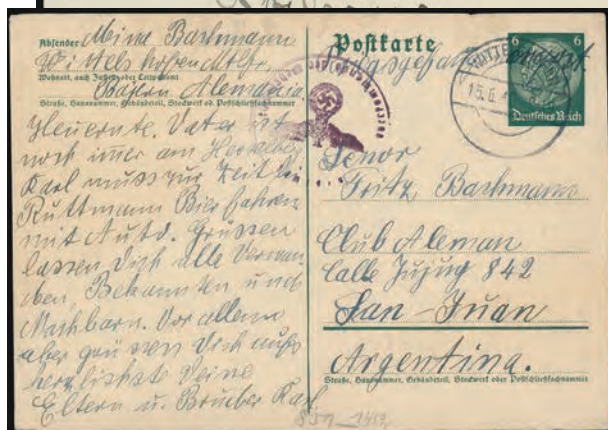 Absender: Mina Bachmann
Wittelshofen
Wohnort, auch Zustell- oder Leitpostamt
Bayern Alemania
Straße, Hausnummer, Gebäudeteil, Stockwerk od. Postschließfachnummer
Heuernte. Vater ist
noch imer am
Karl muss zur Zeit bei
Ruttmann Bier fahren
mit Auto. Grüssen
lassen Dich alle Verwan
ten, Bekannten und
Nachbarn. Vor allem
aber grüssen Dich aufs
herzlichste Deine
Eltern u. Bruder Karl
Postkarte
6
6
15.6.4
Deutsches Reich
Senor
Fritz Bachmann
Club Aleman
Calle Jujuy 842
San-Juan
Argentina.
Straße, Hausnummer, Gebäudeteil, Stockwerk oder Postschließfachnummer